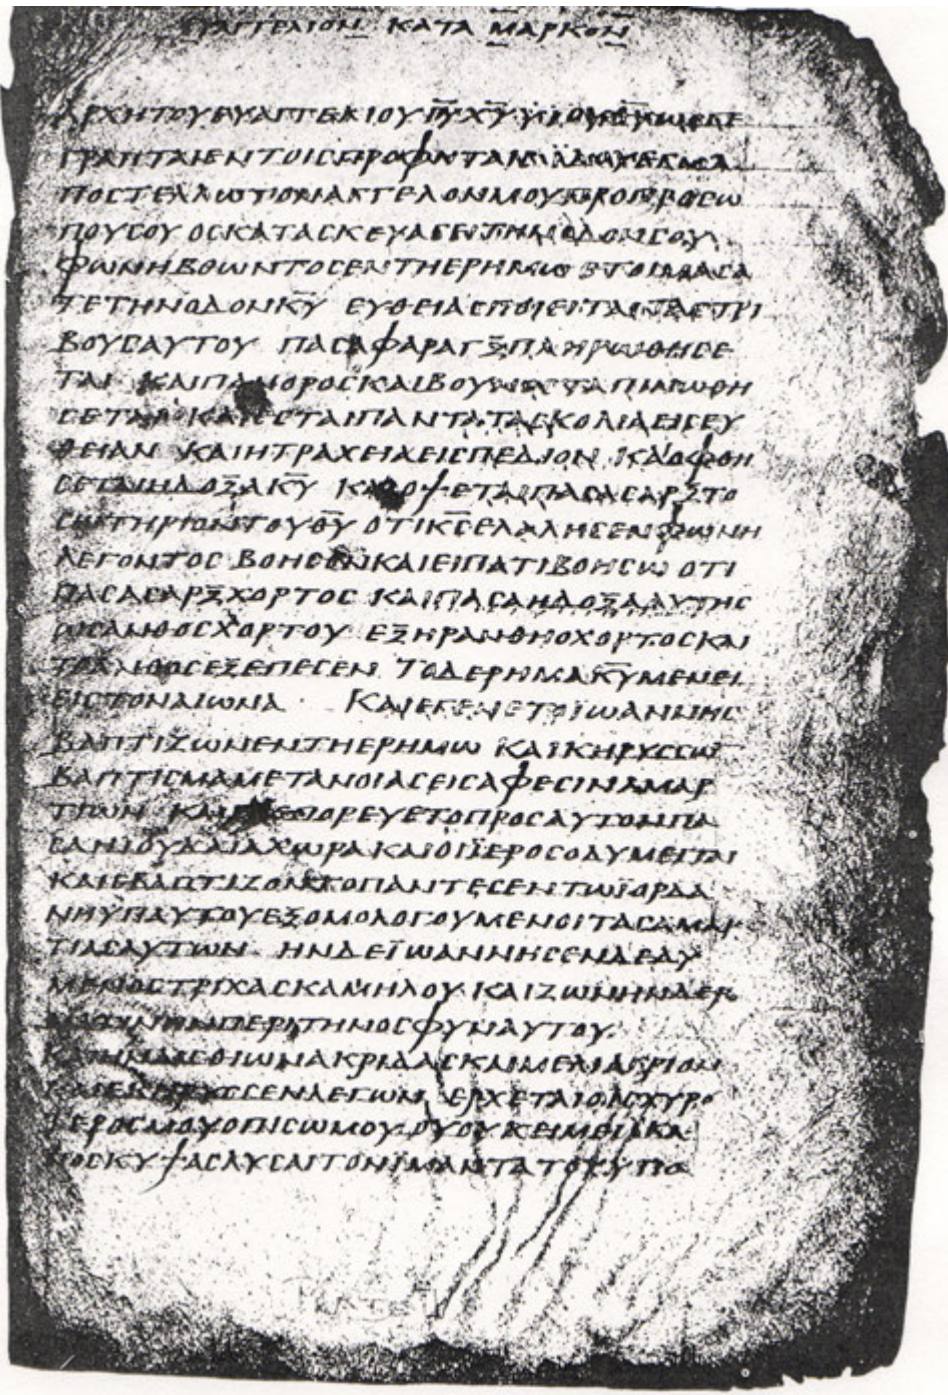 ΕΥΑΓΓΕΛΙΟΝ ΚΑΤΑ ΜΑΡΚΟΝ
ΑΡΧΗΤΟΥΕΥΑΓΓΕΛΙΟΥ ΙΥ ΧΥ ΥΙΟΥ
ΓΡΑΠΤΑΙΕΝΤΟΙΣ
ΠΟΣΤΕΛΛΩΤΟΝΑΓΓΕΛΟΝΜΟΥΠΡΟΠΡΟΣΩ
ΠΟΥΣΟΥ ΟΣΚΑΤΑΣΚΕΥΑΣΕΙΤΗΝΟΔΟΝΣΟΥ
ΦΩΝΗΒΟΩΝΤΟΣΕΝΤΗΕΡΗΜΩ ΕΤΟΙΜΑΣΑ
ΤΕΤΗΝΟΔΟΝΚΥ ΕΥΘΕΙΑΣΠΟΙΕΙΤΑΙΤΑΣΤΡΙ
ΒΟΥΣΑΥΤΟΥ ΠΑΣΑΦΑΡΑΓΞΠΛΗΡΩΘΗΣΕ
ΤΑΙ ΚΑΙΠΑΝΟΡΟΣΚΑΙΒΟΥΝΟΣΤΑΠΙΝΩΘΗ
ΣΕΤΑΙ ΚΑΙΕΣΤΑΙΠΑΝΤΑΤΑΣΚΟΛΙΑΕΙΣΕΥ
ΘΕΙΑΝ ΚΑΙΗΤΡΑΧΕΙΑΕΙΣΠΕΔΙΟΝ ΚΑΙΟΦΘΗ
ΣΕΤΑΙΗΔΟΞΑΚΥ ΚΑΙΟΨΕΤΑΙΠΑΣΑΣΑΡΞΤΟ
ΣΩΤΗΡΙΟΝΤΟΥΘΥ ΟΤΙΚΣΕΛΑΛΗΣΕΝΦΩΝΗ
ΛΕΓΟΝΤΟΣ ΒΟΗΣΟΝΚΑΙΕΙΠΑΤΙΒΟΗΣΩ ΟΤΙ
ΠΑΣΑΣΑΡΞΧΟΡΤΟΣ ΚΑΙΠΑΣΑΗΔΟΞΑΑΥΤΗΣ
ΩΣΑΝΘΟΣΧΟΡΤΟΥ ΕΞΗΡΑΝΘΗΟΧΟΡΤΟΣΚΑΙ
ΤΟΑΝΘΟΣΕΞΕΠΕΣΕΝ ΤΟΔΕΡΗΜΑΚΥΜΕΝΕΙ
ΕΙΣΤΟΝΑΙΩΝΑ ΚΑΙΕΓΕΝΕΤΟΪΩΑΝΝΗΣ
ΒΑΠΤΙΖΩΝΕΝΤΗΕΡΗΜΩ ΚΑΙΚΗΡΥΣΣΩ
ΒΑΠΤΙΣΜΑΜΕΤΑΝΟΙΑΣΕΙΣΑΦΕΣΙΝΑΜΑΡ
ΤΙΩΝ ΚΑΙΕΞΕΠΟΡΕΥΕΤΟΠΡΟΣΑΥΤΟΝΠΑ
ΣΑΗΪΟΥΔΑΙΑΧΩΡΑΚΑΙΟΙΪΕΡΟΣΟΛΥΜΕΙΤΑΙ
ΚΑΙΕΒΑΠΤΙΖΟΝΤΟΠΑΝΤΕΣΕΝΤΩΪΟΡΔΑ
ΝΗΥΠΑΥΤΟΥΕΞΟΜΟΛΟΓΟΥΜΕΝΟΙΤΑΣΑΜΑΡ
ΤΙΑΣΑΥΤΩΝ ΗΝΔΕΪΩΑΝΝΗΣΕΝΔΕΔΥ
ΜΕΝΟΣΤΡΙΧΑΣΚΑΜΗΛΟΥ ΚΑΙΖΩΝΗΝΔΕΡ
ΜΑΤΙΝΗΝΠΕΡΙΤΗΝΟΣΦΥΝΑΥΤΟΥ
ΚΑΙΗΝΔΕΣΘΙΩΝΑΚΡΙΔΑΣΚΑΙΜΕΛΙΑΓΡΙΟΝ
ΚΑΙΕΚΗΡΥΣΣΕΝΛΕΓΩΝ ΕΡΧΕΤΑΙΟΙΣΧΥΡΟ
ΤΕΡΟΣΜΟΥΟΠΙΣΩΜΟΥ ΟΥΟΥΚΕΙΜΕΙΪΚΑ
ΝΟΣΚΥΨΑΣΛΥΣΑΙΤΟΝΪΜΑΝΤΑΤΟΥΥΠΟ